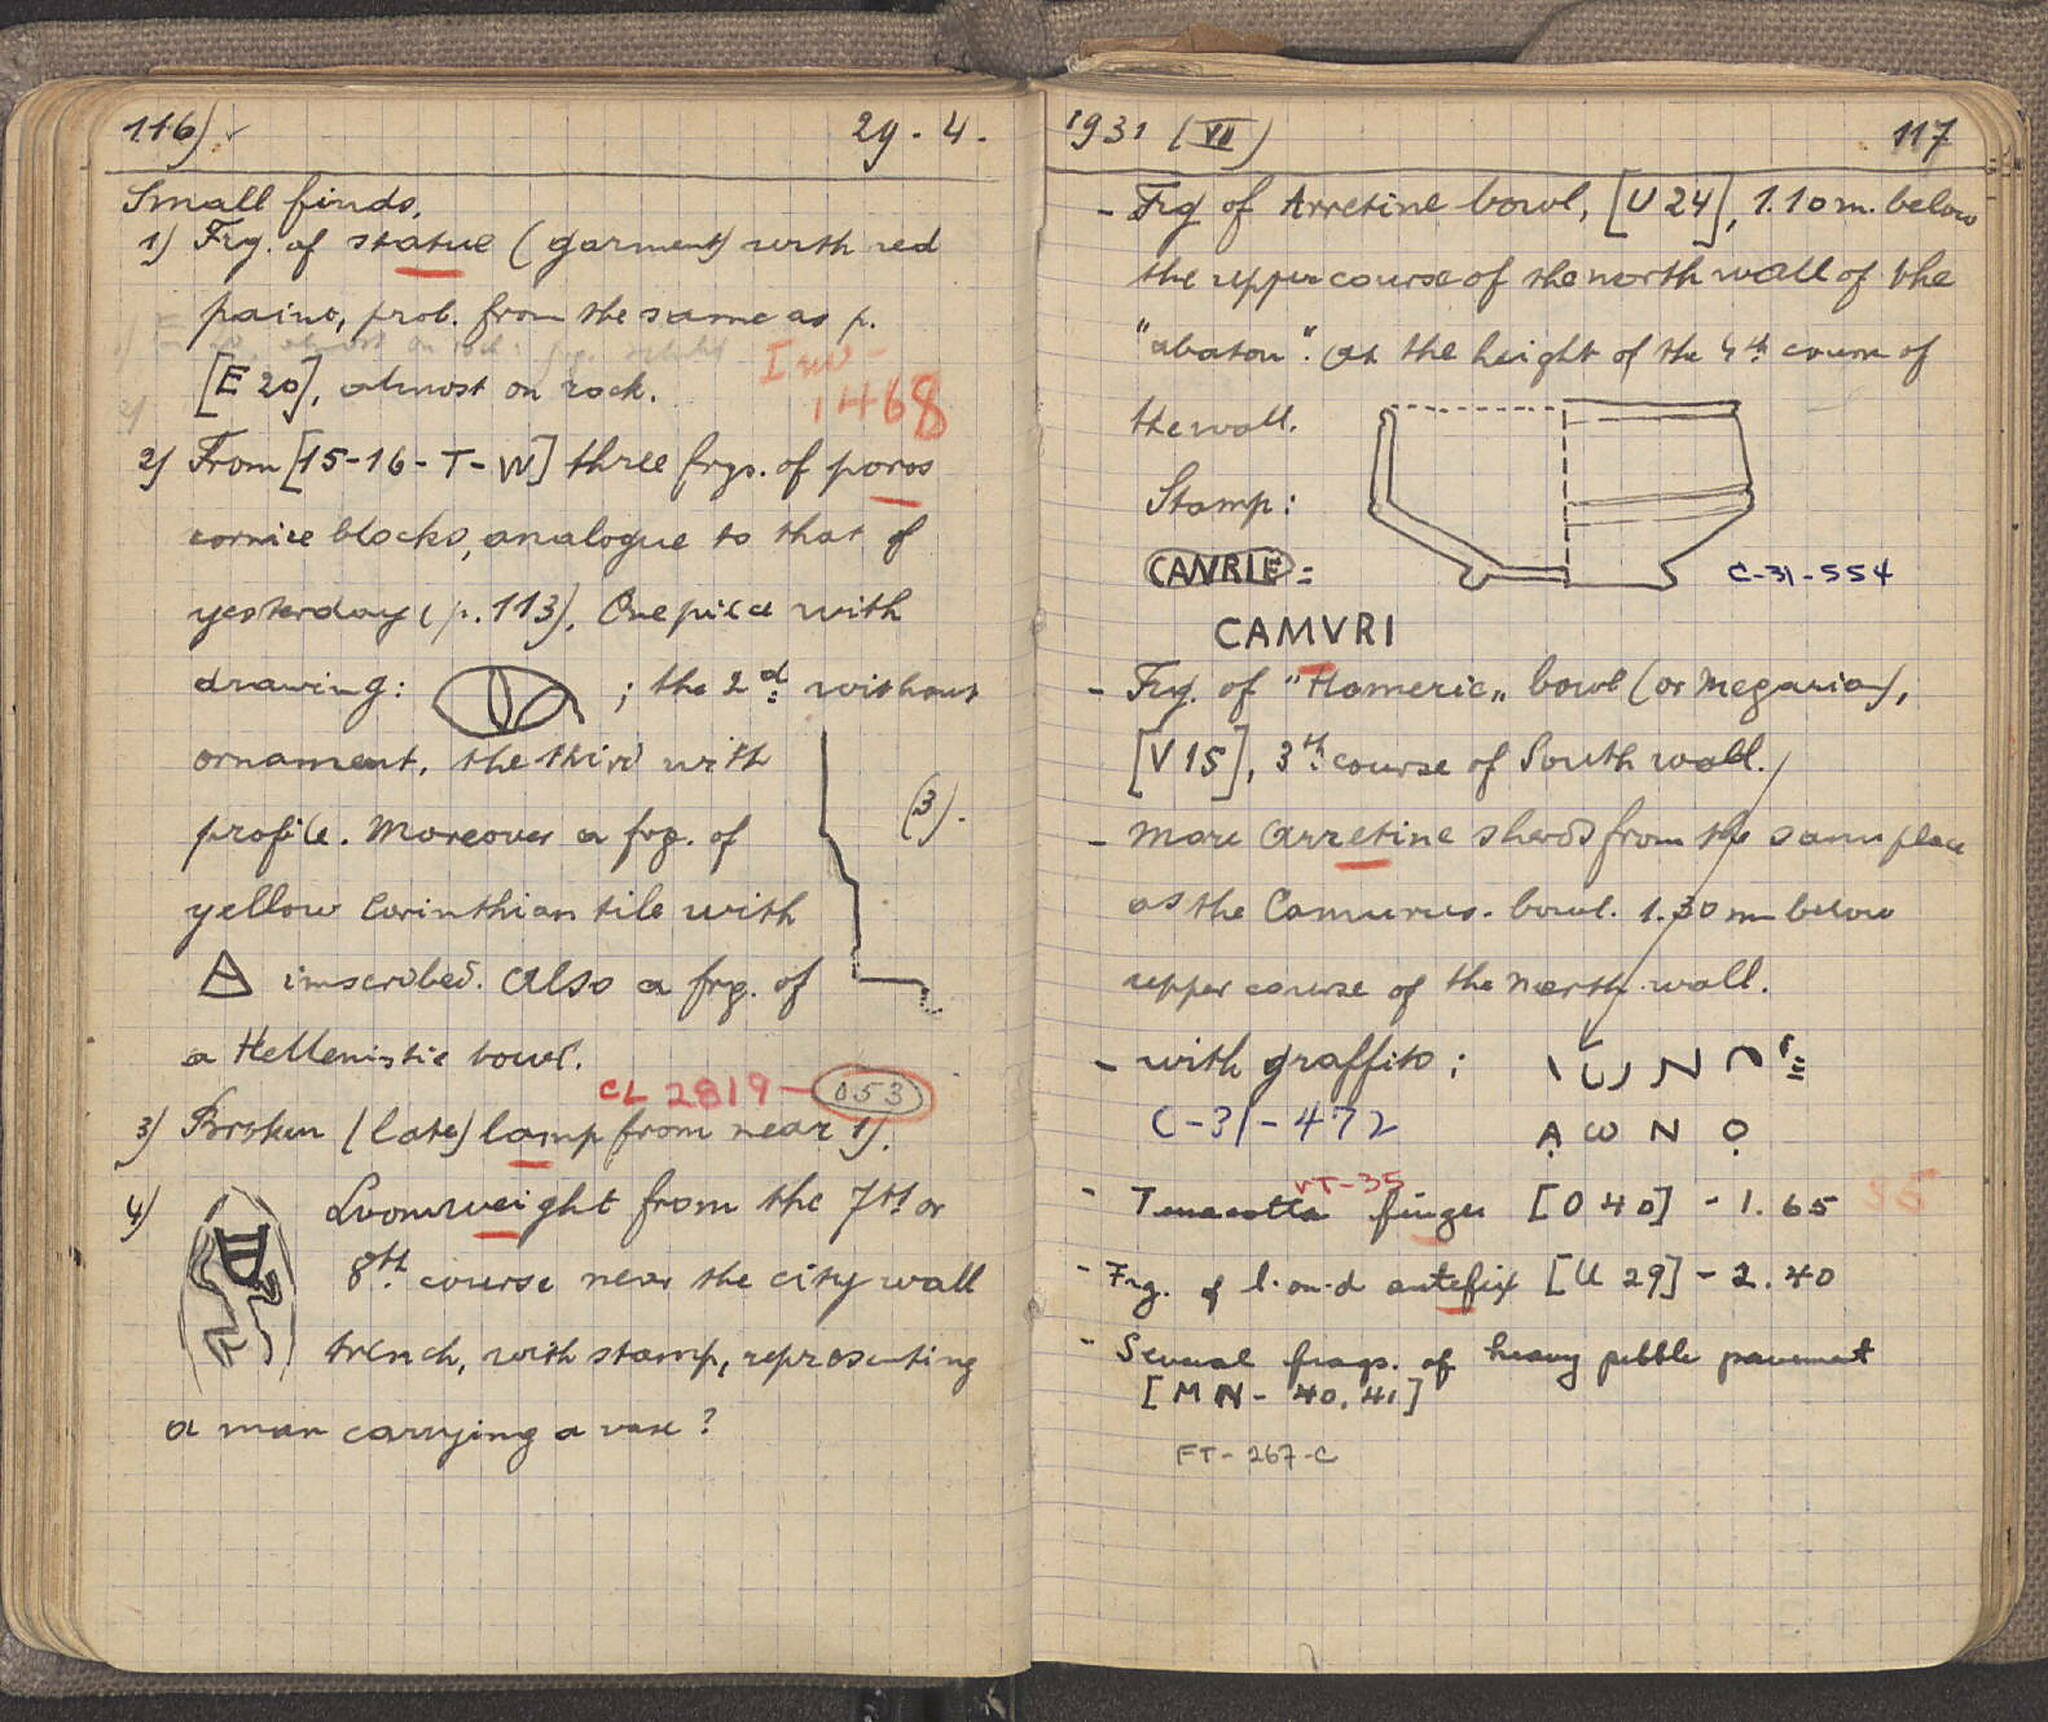 116)
29. 4.
Small finds.
1) Frg. of statue (garment) with red
paint, prob. from the same as p.
[E 20], almost on rock.
Inv-
1468
2) From [15-16-T-W] three frgs. of poros
cornice blocks, analogue to that of
yesterday (p. 113). One piece with
drawing: ; the 2d without
ornament, the third with
profile. Moreover a frg. of
(3).
yellow Corinthian tile with
A inscribed. Also a frg. of
a Hellenistic bowl.
CL 2819 - 053
3) Broken (late) lamp from near 1).
4) Loomweight from the 7th or
8th course near the city wall
trench, with stamp, representing
a man carrying a vase?
1931 (VII)
117
- Frg of Arretine bowl, [U 24], 1.10 m. below
the upper course of the north wall of the
"abaton". At the height of the 4th course of
the wall.
Stamp:
CANRLE =
C-31-554
CAMVRI
- Frg. of "Homeric" bowl (or Megarian),
[V 15], 3th course of South wall.
- More Arretine sherds from the same place
as the Camurus-bowl. 1.30 m below
upper course of the north wall.
- with graffito:
C-31-472
A ω N O
VT-35
- Terracotta finger [O 40] - 1.65
35
- Frg. of l. on-d antefix [U 29] - 2.40
- Several frags. of heavy pebble pavement
[MN - 40, 41]
FT-267-C